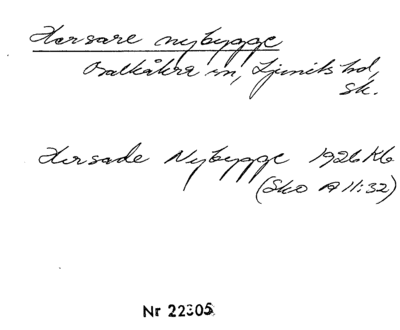 Horsare nybygge
Balkåkra sn, Ljunits hd,
Sk.
Horsade Nybygge 1926 Kb
(Sko A II:32)
Nr 22305